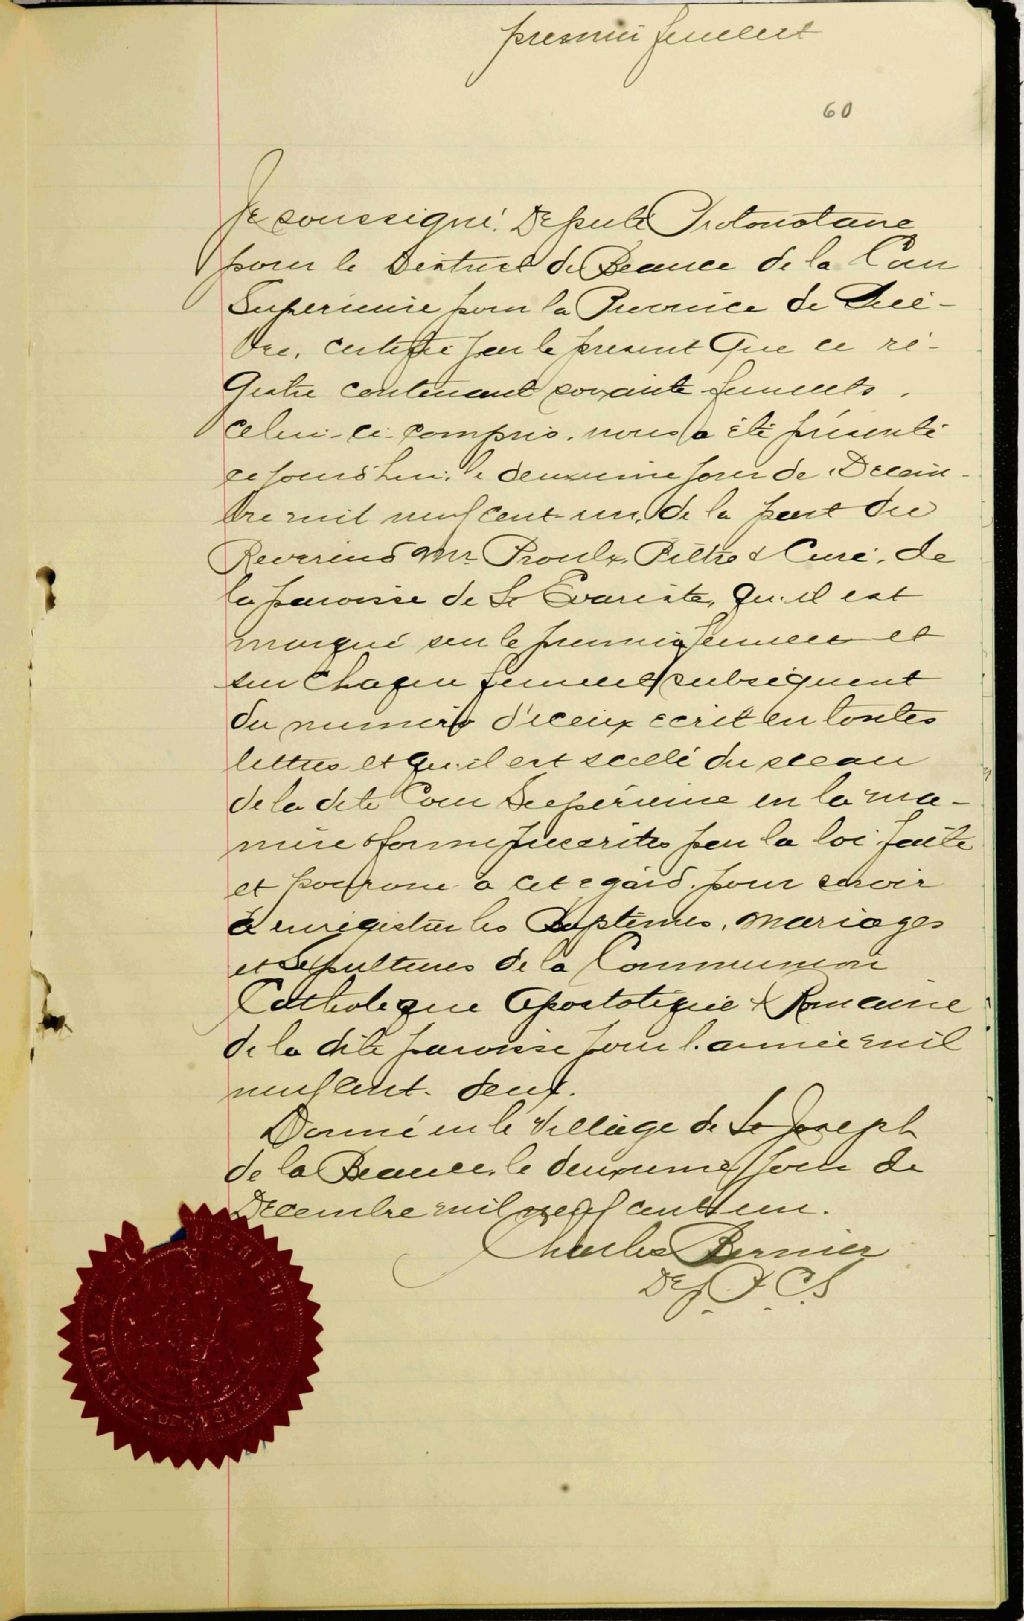 premier feuillet
60
Je soussigné, Député Protonotaire
pour le District de Beauce de la Cour
Supérieure pour la Province de Qué-
bec, certifie par le présent que ce ré-
gistre contenant soixante feuillets,
celui-ci compris, nous a été présenté
cejourd'hui, le deuxieme jour de Decem-
bre mil neuf cent-un, de la part du
Reverend Mr. Proulx, Prêtre & Curé, de
la paroisse de St Evariste, qu'il est
marqué sur le premier feuillet et
sur chaque feuillet subséquent
du numéro d'iceux écrit en toutes
lettres et qu'il est scellé du sceau
de la dite Cour Supérieure en la ma-
nière & forme prescrites par la loi faite
et pourvue à cet egard, pour servir
à enrégistrer les Baptemes, Mariages
et Sepultures de la Communion
Catholique Apostolique & Romaine
de la dite paroisse pour l'année mil
neuf cent-deux.
Donné en le Village de St Joseph
de la Beauce, le deuxieme jour de
Decembre mil neuf cent un.
Charles Bernier
Dep. P. C. S